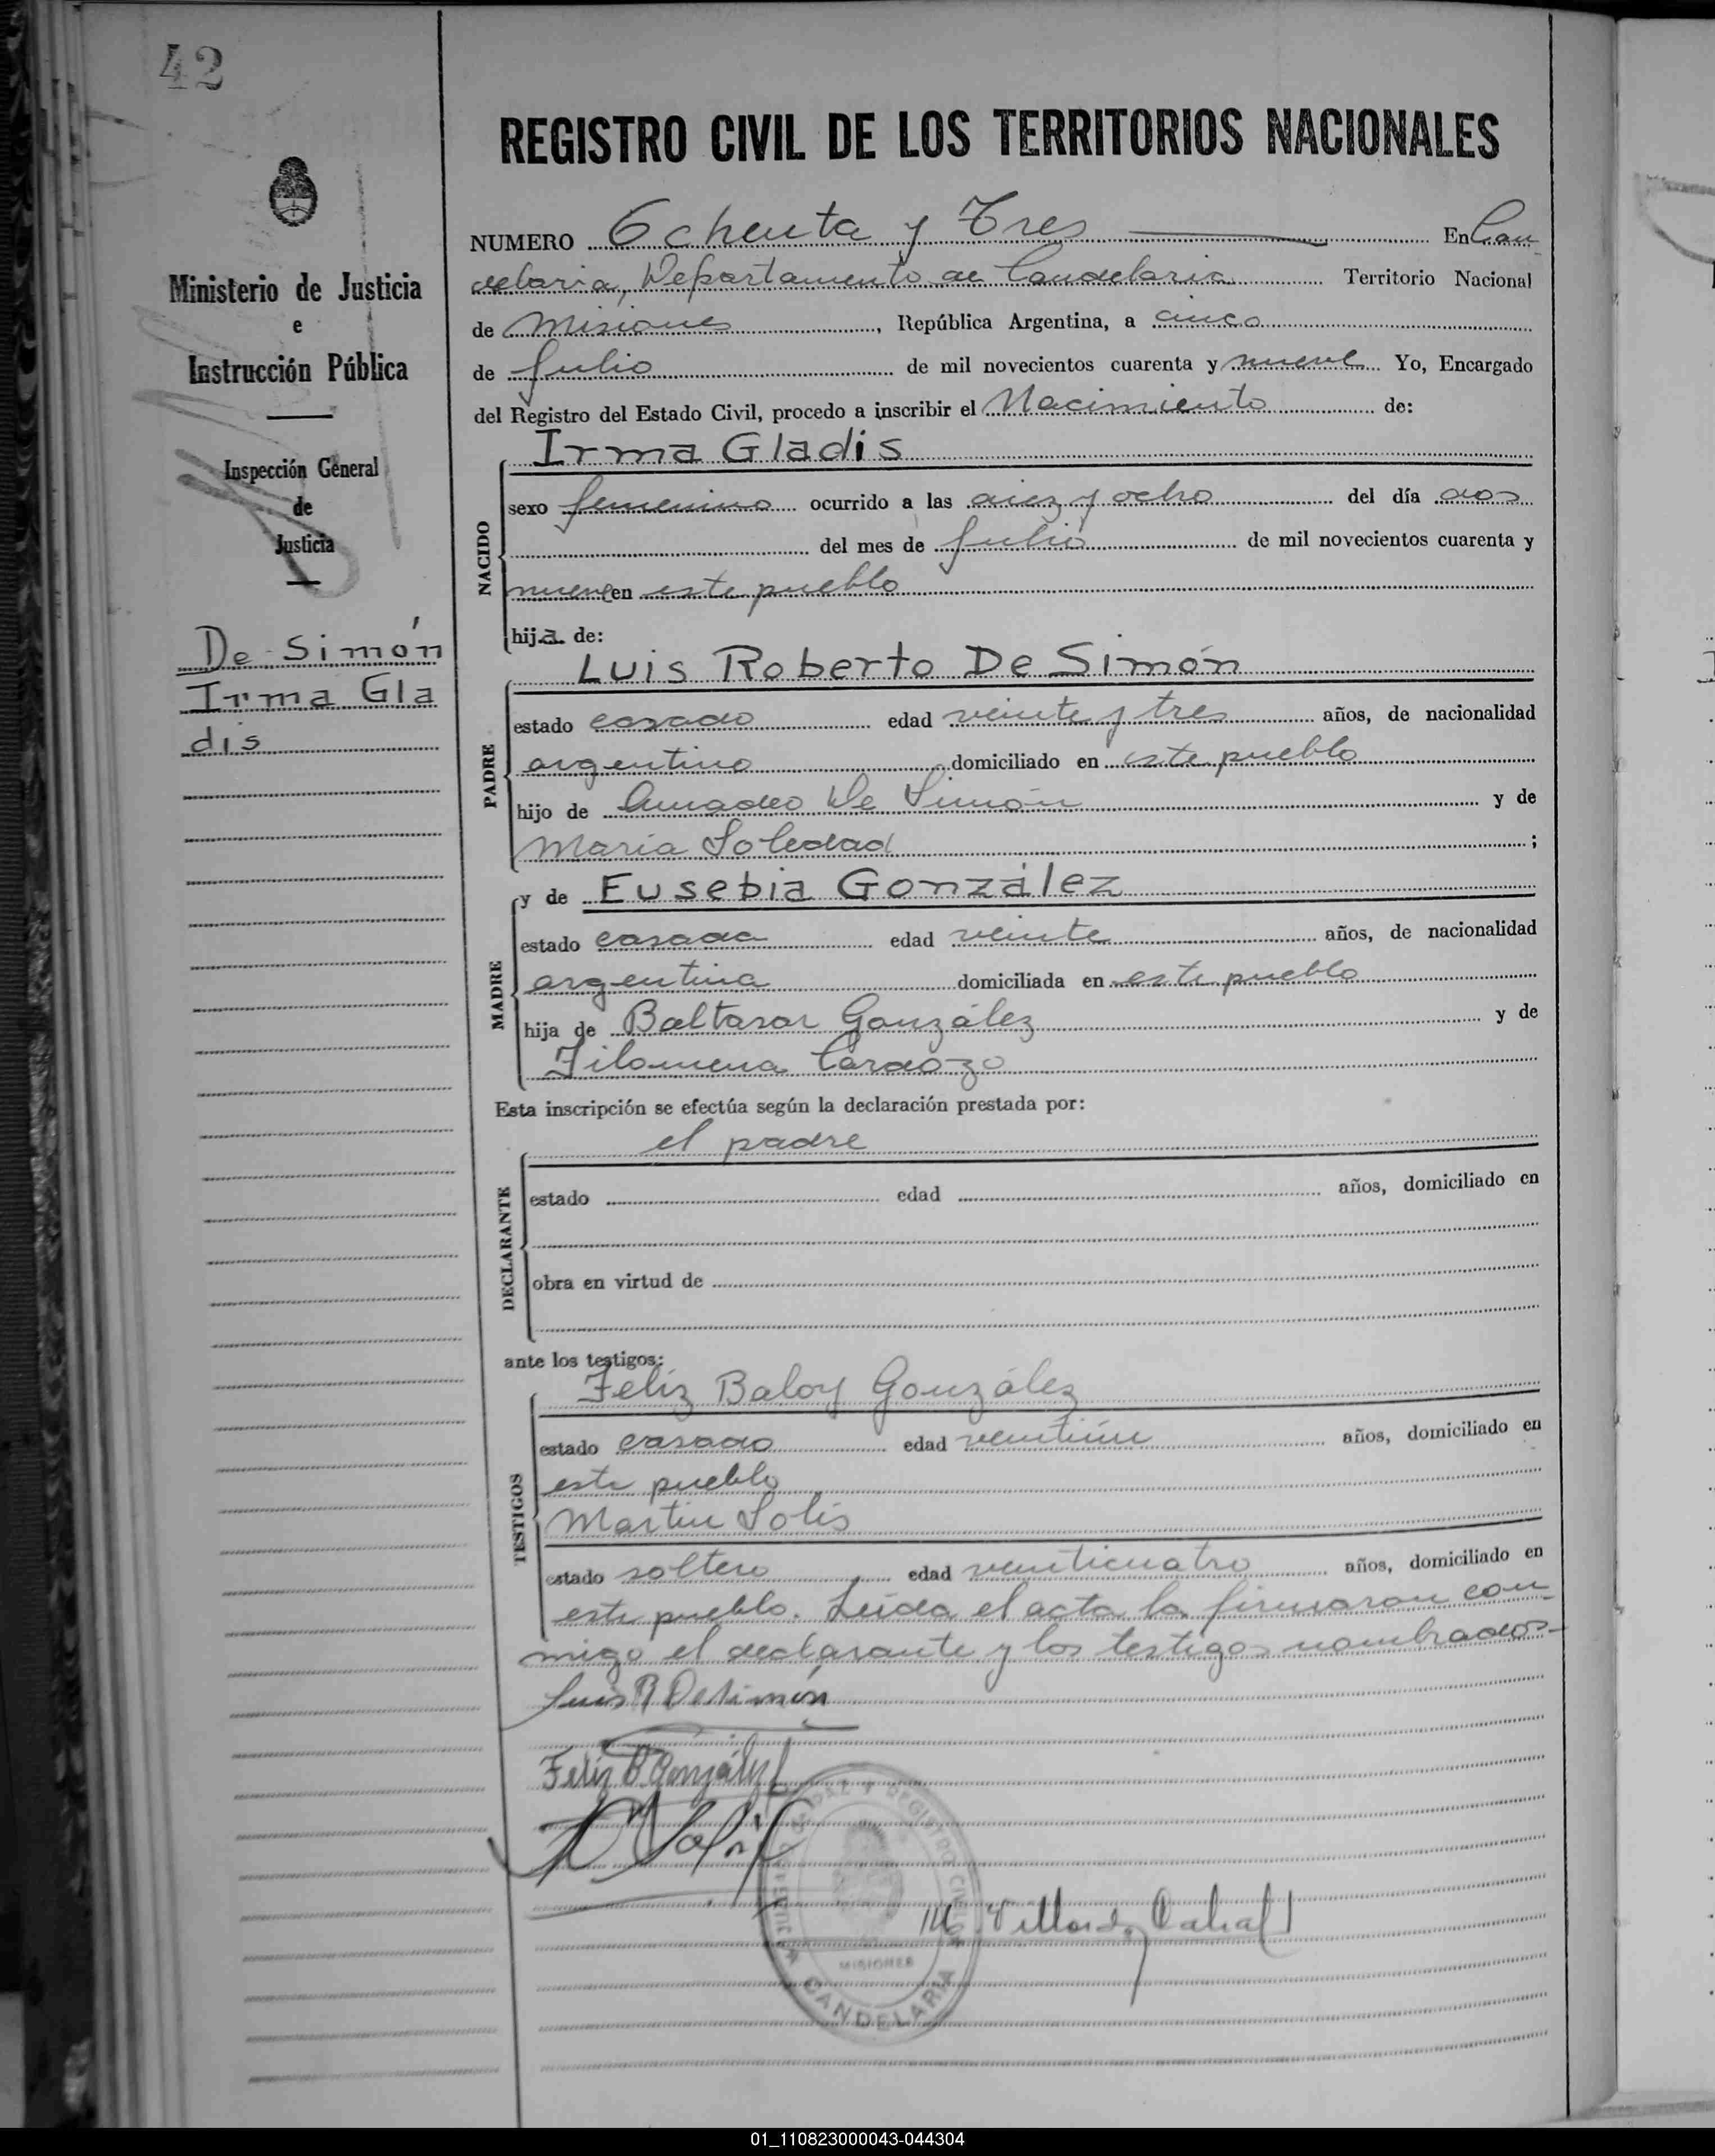 42
REGISTRO CIVIL DE LOS TERRITORIOS NACIONALES
Ministerio de Justicia
e
Instrucción Pública
Inspección General
de
Justicia
De Simón
Irma Gla
dis
NUMERO Ochenta y Tres En Can
delaria, Departamento de Candelaria Territorio Nacional
de Misiones, República Argentina, a cinco
de Julio de mil novecientos cuarenta y nueve Yo, Encargado
del Registro del Estado Civil, procedo a inscribir el Nacimiento de:
Irma Gladis
NACIDO
sexo femenino ocurrido a las diez y ocho del día dos
del mes de Julio de mil novecientos cuarenta y
nueve en este pueblo
hija de:
Luis Roberto De Simón
PADRE
estado casado edad veinte y tres años, de nacionalidad
argentino domiciliado en este pueblo
hijo de Amadeo De Simón y de
María Soledad ;
y de Eusebia González
MADRE
estado casada edad veinte años, de nacionalidad
argentina domiciliada en este pueblo
hija de Baltasar González y de
Filomena Cardozo
Esta inscripción se efectúa según la declaración prestada por:
el padre
DECLARANTE
estado edad años, domiciliado en
obra en virtud de
ante los testigos:
Feliz Baloy González
TESTIGOS
estado casado edad veintiun años, domiciliado en
este pueblo
Martin Solis
estado soltero edad veinticuatro años, domiciliado en
este pueblo. Leída el acta la firmaron con-
migo el declarante y los testigos nombrados-
Luis R DeSimón
Feliz B González
M Solis
REGISTRO CIVIL
MISIONES
CANDELARIA
Cabral
01_110823000043-044304